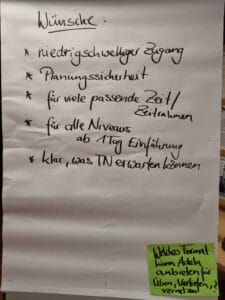 Wünsche:
* niedrigschwelliger Zugang
* Planungssicherheit
* für viele passende Zeit/
Zeitrahmen
* für alle Niveaus
ab 1 Tag Einführung
* klar, was TN erwarten können
Welches Format
kann Adela
anbieten für
Üben, Vertiefen,
vernetzen?